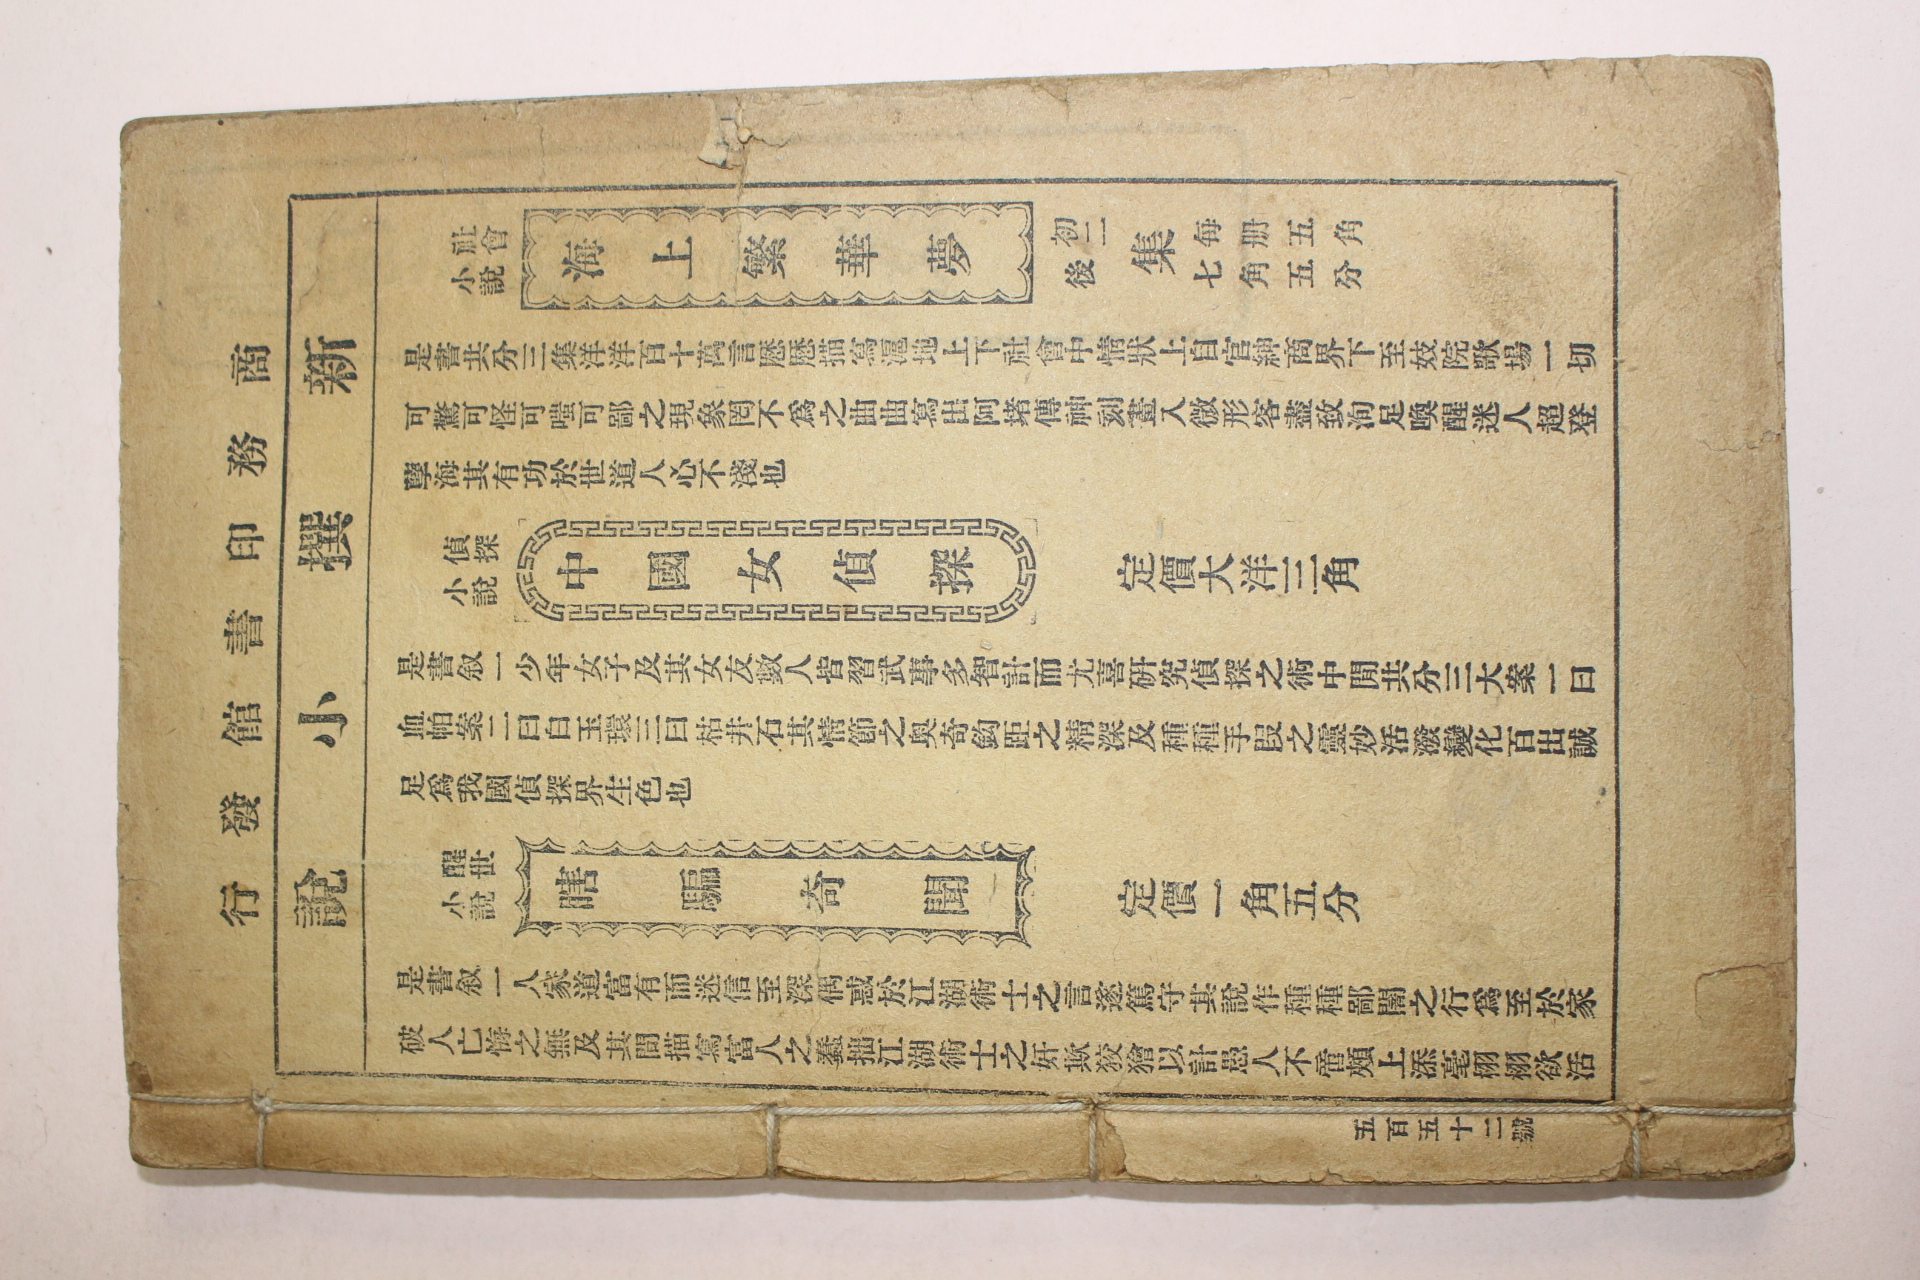 商務印書館發行
新撰小說
社會小說
海上繁華夢
初二集每册五角
後集七角五分
是書共分三集洋洋百十萬言歷歷描寫滬地上下社會中情狀上自官紳商界下至妓院歌場一切
可驚可怪可嗤可鄙之現象罔不爲之曲曲寫出阿堵傳神刻畫入微形容盡致洵足喚醒迷人超登
孽海其有功於世道人心不淺也
偵探小說
中國女偵探
定價大洋三角
是書敘一少年女子及其女友數人皆習武事多智計而尤喜硏究偵探之術中間共分三大案一曰
血帕案二曰白玉環三曰枯井石其情節之奥奇鈎距之精深及種種手段之靈妙活潑變化百出誠
足爲我國偵探界生色也
醒世小說
瞎騙奇聞
定價一角五分
是書敘一人家道富有而迷信至深偶惑於江湖術士之言遂篤守其說作種種鄙闇之行爲至於家
破人亡悔之無及其間描寫富人之蠢拙江湖術士之奸欺狡獪以計愚人不啻頰上添毫栩栩欲活
五百五十二號